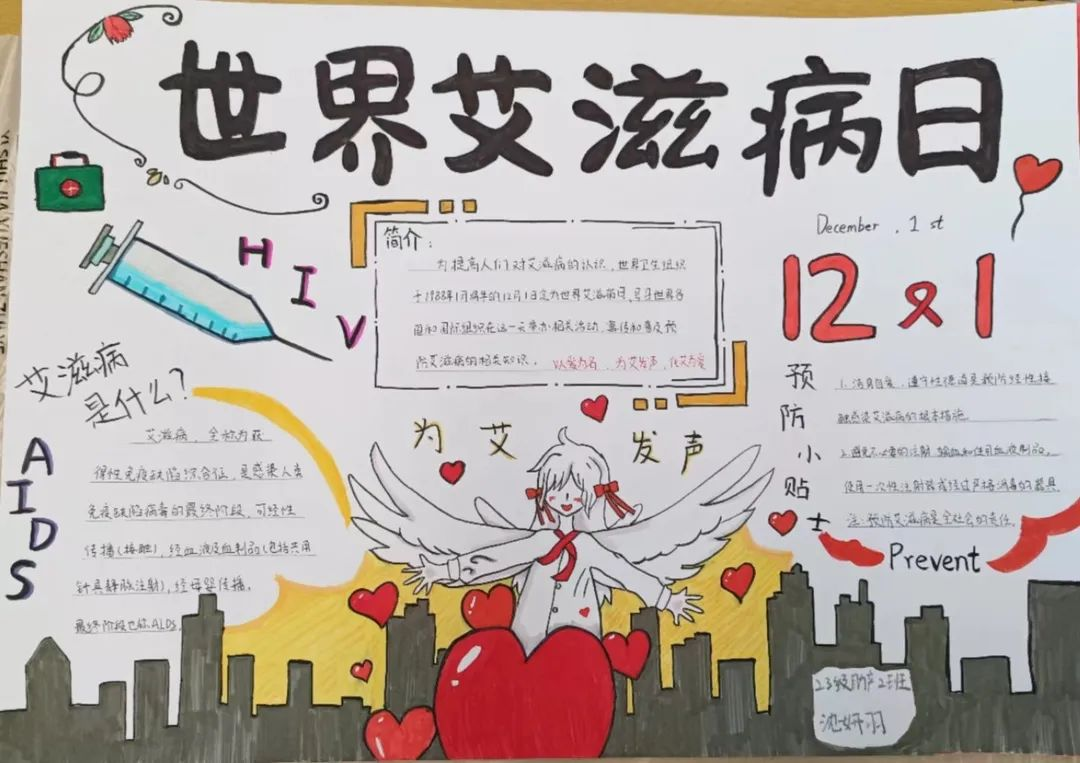 世界艾滋病日
HIV
简介：
为提高人们对艾滋病的认识，世界卫生组织
于1988年1月将年的12月1日定为世界艾滋病日，号召世界各
国和国际组织在这一天举办相关活动，宣传和普及预
防艾滋病的相关知识。以爱为名，为艾发声，化艾为爱
December . 1 st
12 1
艾滋病
是什么？
AIDS
艾滋病，全称为获
得性免疫缺陷综合征，是感染人类
免疫缺陷病毒的最终阶段，可经性
传播(接触)，经血液及血制品(包括共用
针具静脉注射)，经母婴传播。
最终阶段也称ALDS。
为艾发声
预防小贴士
1.洁身自爱，遵守性道德是预防经性接
触感染艾滋病的根本措施.
2.避免不必要的注射、输血和使用血液制品。
使用一次性注射器或经过严格消毒的器具
注：预防艾滋病是全社会的责任。
Prevent
23级助产2班
沈妍羽